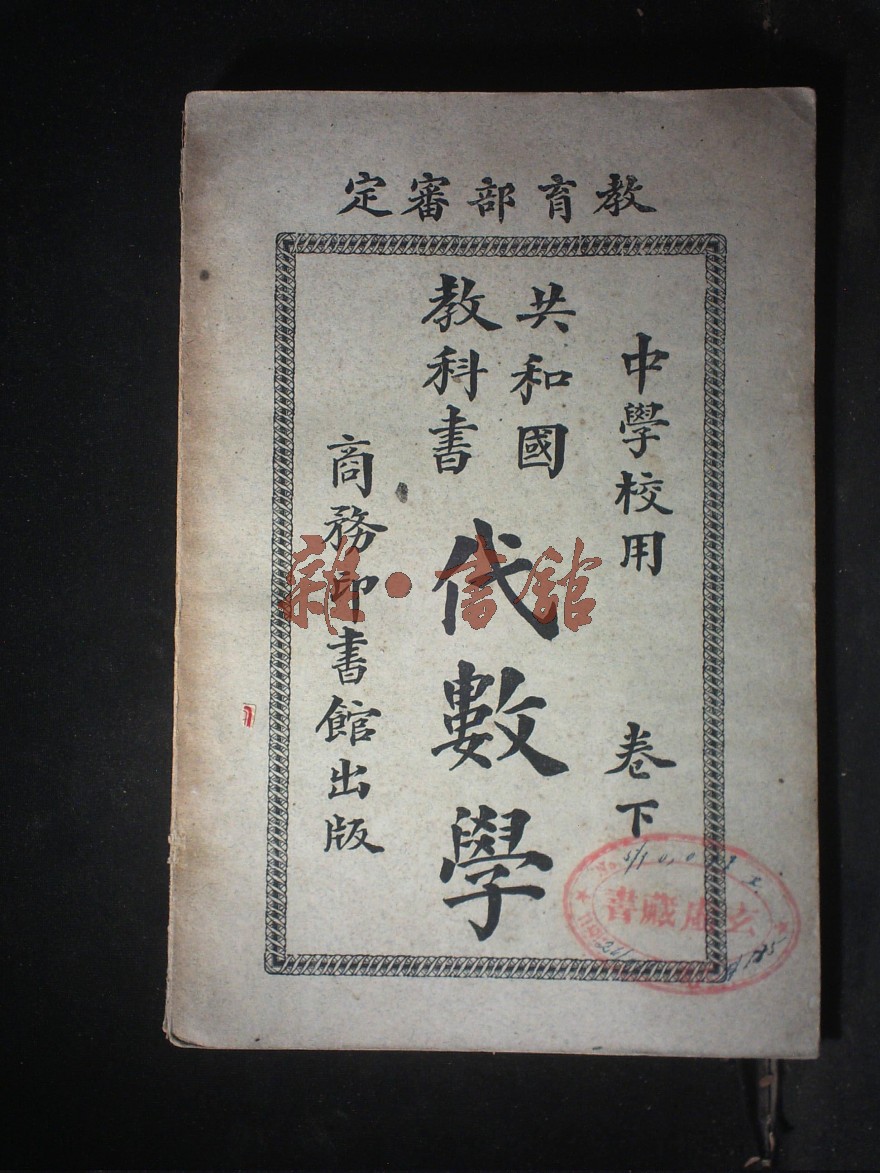 教育部審定
中學校用 卷下
共和國
教科書
代數學
商務印書館出版
雜·書館
玄廬藏書